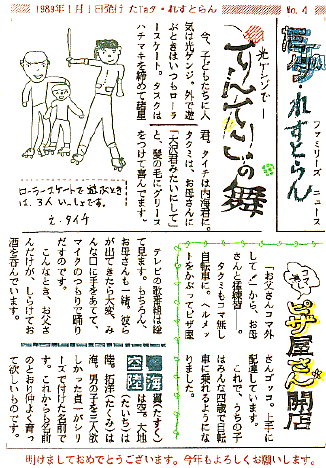 1989年1月1日発行 たTaタ・れすとらん No.4
・れすとらん
ファミリーズ ニュース
光ゲンジで―
の舞
今、子どもたちに人
気は光ゲンジ。外で遊
ぶときはいつもローラ
ースケート。タスクは
ハチマキを締めて諸星
君。タイチは内海君に。
タクミは、お母さんに
「大沢君みたいにして」
と、髪の毛にグリース
をつけて喜んでます。
ローラースケートで遊ぶとき
は、3人いっしょです。
え.タイチ
ピザ屋さん開店
「お父さんコマ外
して」から、お母
さんと猛練習―。
タクミもコマ無し
自転車に。ヘルメッ
トをかぶってピザ屋
さんゴッコ。上手に
配達しています。
これで、うちの子
はみんな四歳で自転
車に乗れるようにな
りました。
テレビの歌番組は総
て見ます。もちろん、
お母さんも一緒。彼ら
が出てきたら大変、み
んな口に手をあてて、
マイクのつもりで踊り
だすのです。
こんなとき、お父さ
んだけが、しらけてお
酒を呑んでいます。
翼(たすく)
は空。大地
(たいち)は
陸、拓洋(たくみ)は
海。男の子を三人欲
しかった貞一がシリ
ーズで付けた名前で
す。これからも名前
のとおり仲よく育っ
て欲しいものです。
明けましておめでとうございます。今年もよろしくお願いします。